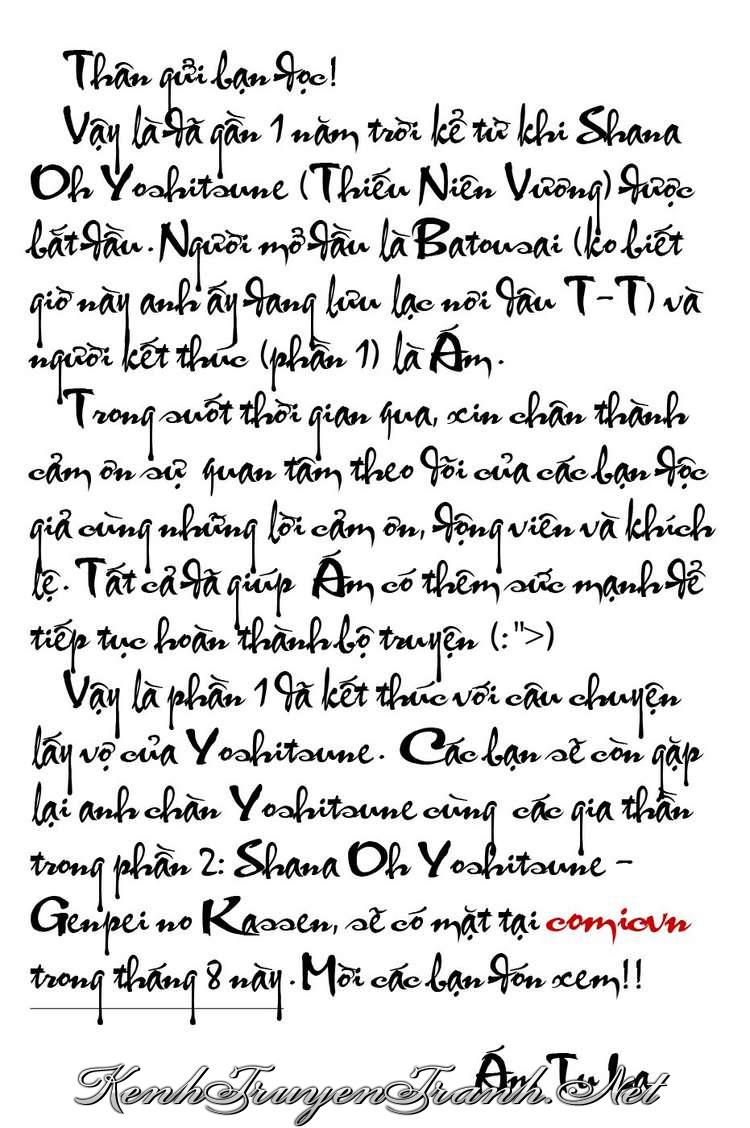 Thân gửi bạn đọc!
Vậy là đã gần 1 năm trời kể từ khi Shana
Oh Yoshitsune (Thiếu Niên Vương) được
bắt đầu. Người mở đầu là Batousai (ko biết
giờ này anh ấy đang lưu lạc nơi đâu T-T) và
người kết thúc (phần 1) là Ấm.
Trong suốt thời gian qua, xin chân thành
cảm ơn sự quan tâm theo dõi của các bạn độc
giả cùng những lời cảm ơn, động viên và khích
lệ. Tất cả đã giúp Ấm có thêm sức mạnh để
tiếp tục hoàn thành bộ truyện (:">)
Vậy là phần 1 đã kết thúc với câu chuyện
lấy vợ của Yoshitsune. Các bạn sẽ còn gặp
lại anh chàn Yoshitsune cùng các gia thần
trong phần 2: Shana Oh Yoshitsune -
Genpei no Kassen, sẽ có mặt tại comicvn
trong tháng 8 này. Mời các bạn đón xem!!
Ấm
KenhTruyenTranh.Net